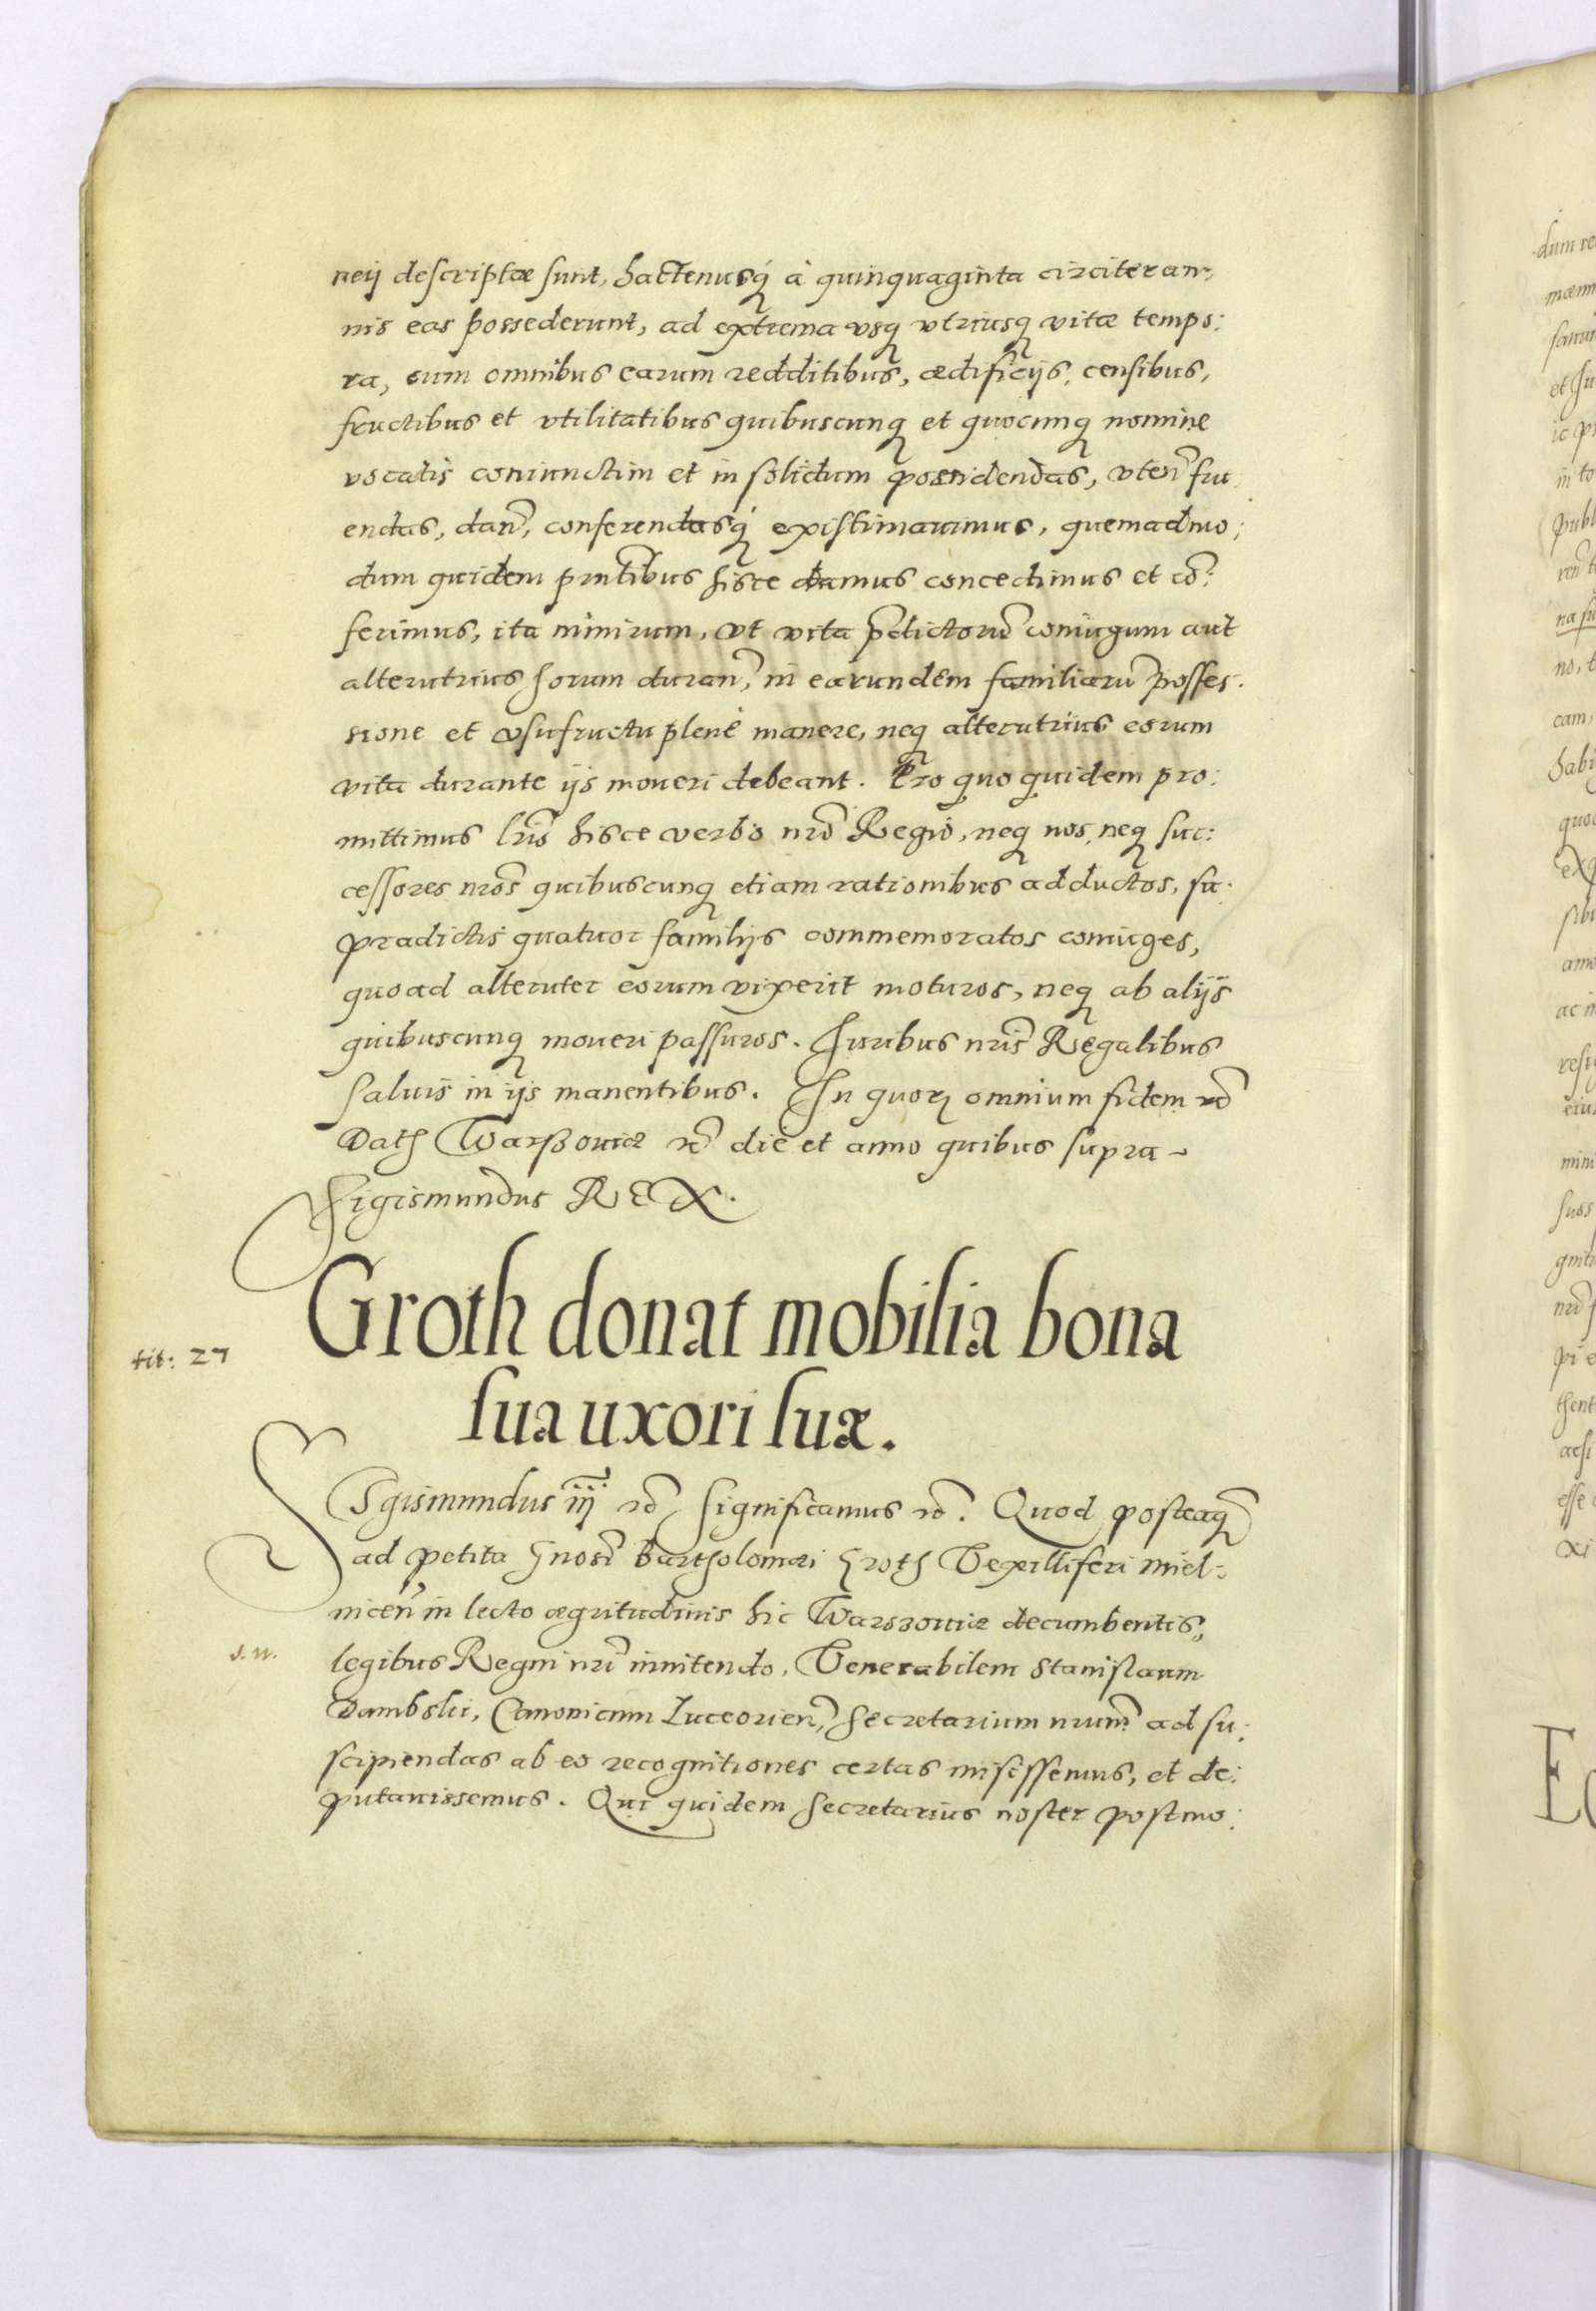 neij descriptæ sunt, hactenusq́ à quinquaginta circiter an,
nis eas possederunt, ad extrema vsq vtriusq vitæ tempo:
ra, cum omnibus earum redditibus, ædificijs, censibus,
fructibus et vtilitatibus quibuscunq et quocunq nomine
vocatis coniunctim et in solidum possidendas, vten̄ fru
endas, dan̄, conferendasq́ existimauimus, quemadmo:
dum quidem pn̄tibus hisce damus concedimus et cō:
ferimus, ita nimirum, vt vita p̄dictorū coniugum aut
alterutrius horum duran̄, in earundem familiarū posses.
sione et vsufructu plenè manere, neq alterutrius eorum
vita durante ijs moueri debeant. Pro quo quidem pro:
mittimus lr̄is hisce verbo nr̄o Regio, neq nos, neq suc:
cessores nr̄os quibuscunq etiam rationibus adductos, su:
pradictis quatuor familijs commemoratos coniuges,
quoad alteruter eorum vixerit moturos, neq ab alijs
quibuscunq moueri passuros. Iuribus nr̄is Regalibus
saluis in ijs manentibus. In quorꝫ omnium fidem rc̄
Dath Warssouiæ rc̄ die et anno quibus supra ~
Sigismundus REX.
tit: 27
Groth donat mobilia bona
sua uxori suæ.
SIgismundus iij rc̄ significamus rc̄. Quod posteaq̄
ad petita Gnosi Bartholomæi Groth Vexilliferi Miel:
nicen̄ in lecto ægritudinis hic Warszouiæ decumbentis,
legibus Regni nr̄i innitendo, Venerabilem Stanislaum
Dambski, Canonicum Luceorien̄, Secretarium nr̄um ad su:
scipiendas ab eo recognitiones certas misissemus, et de:
putauissemus. Qui quidem Secretarius noster postmo: